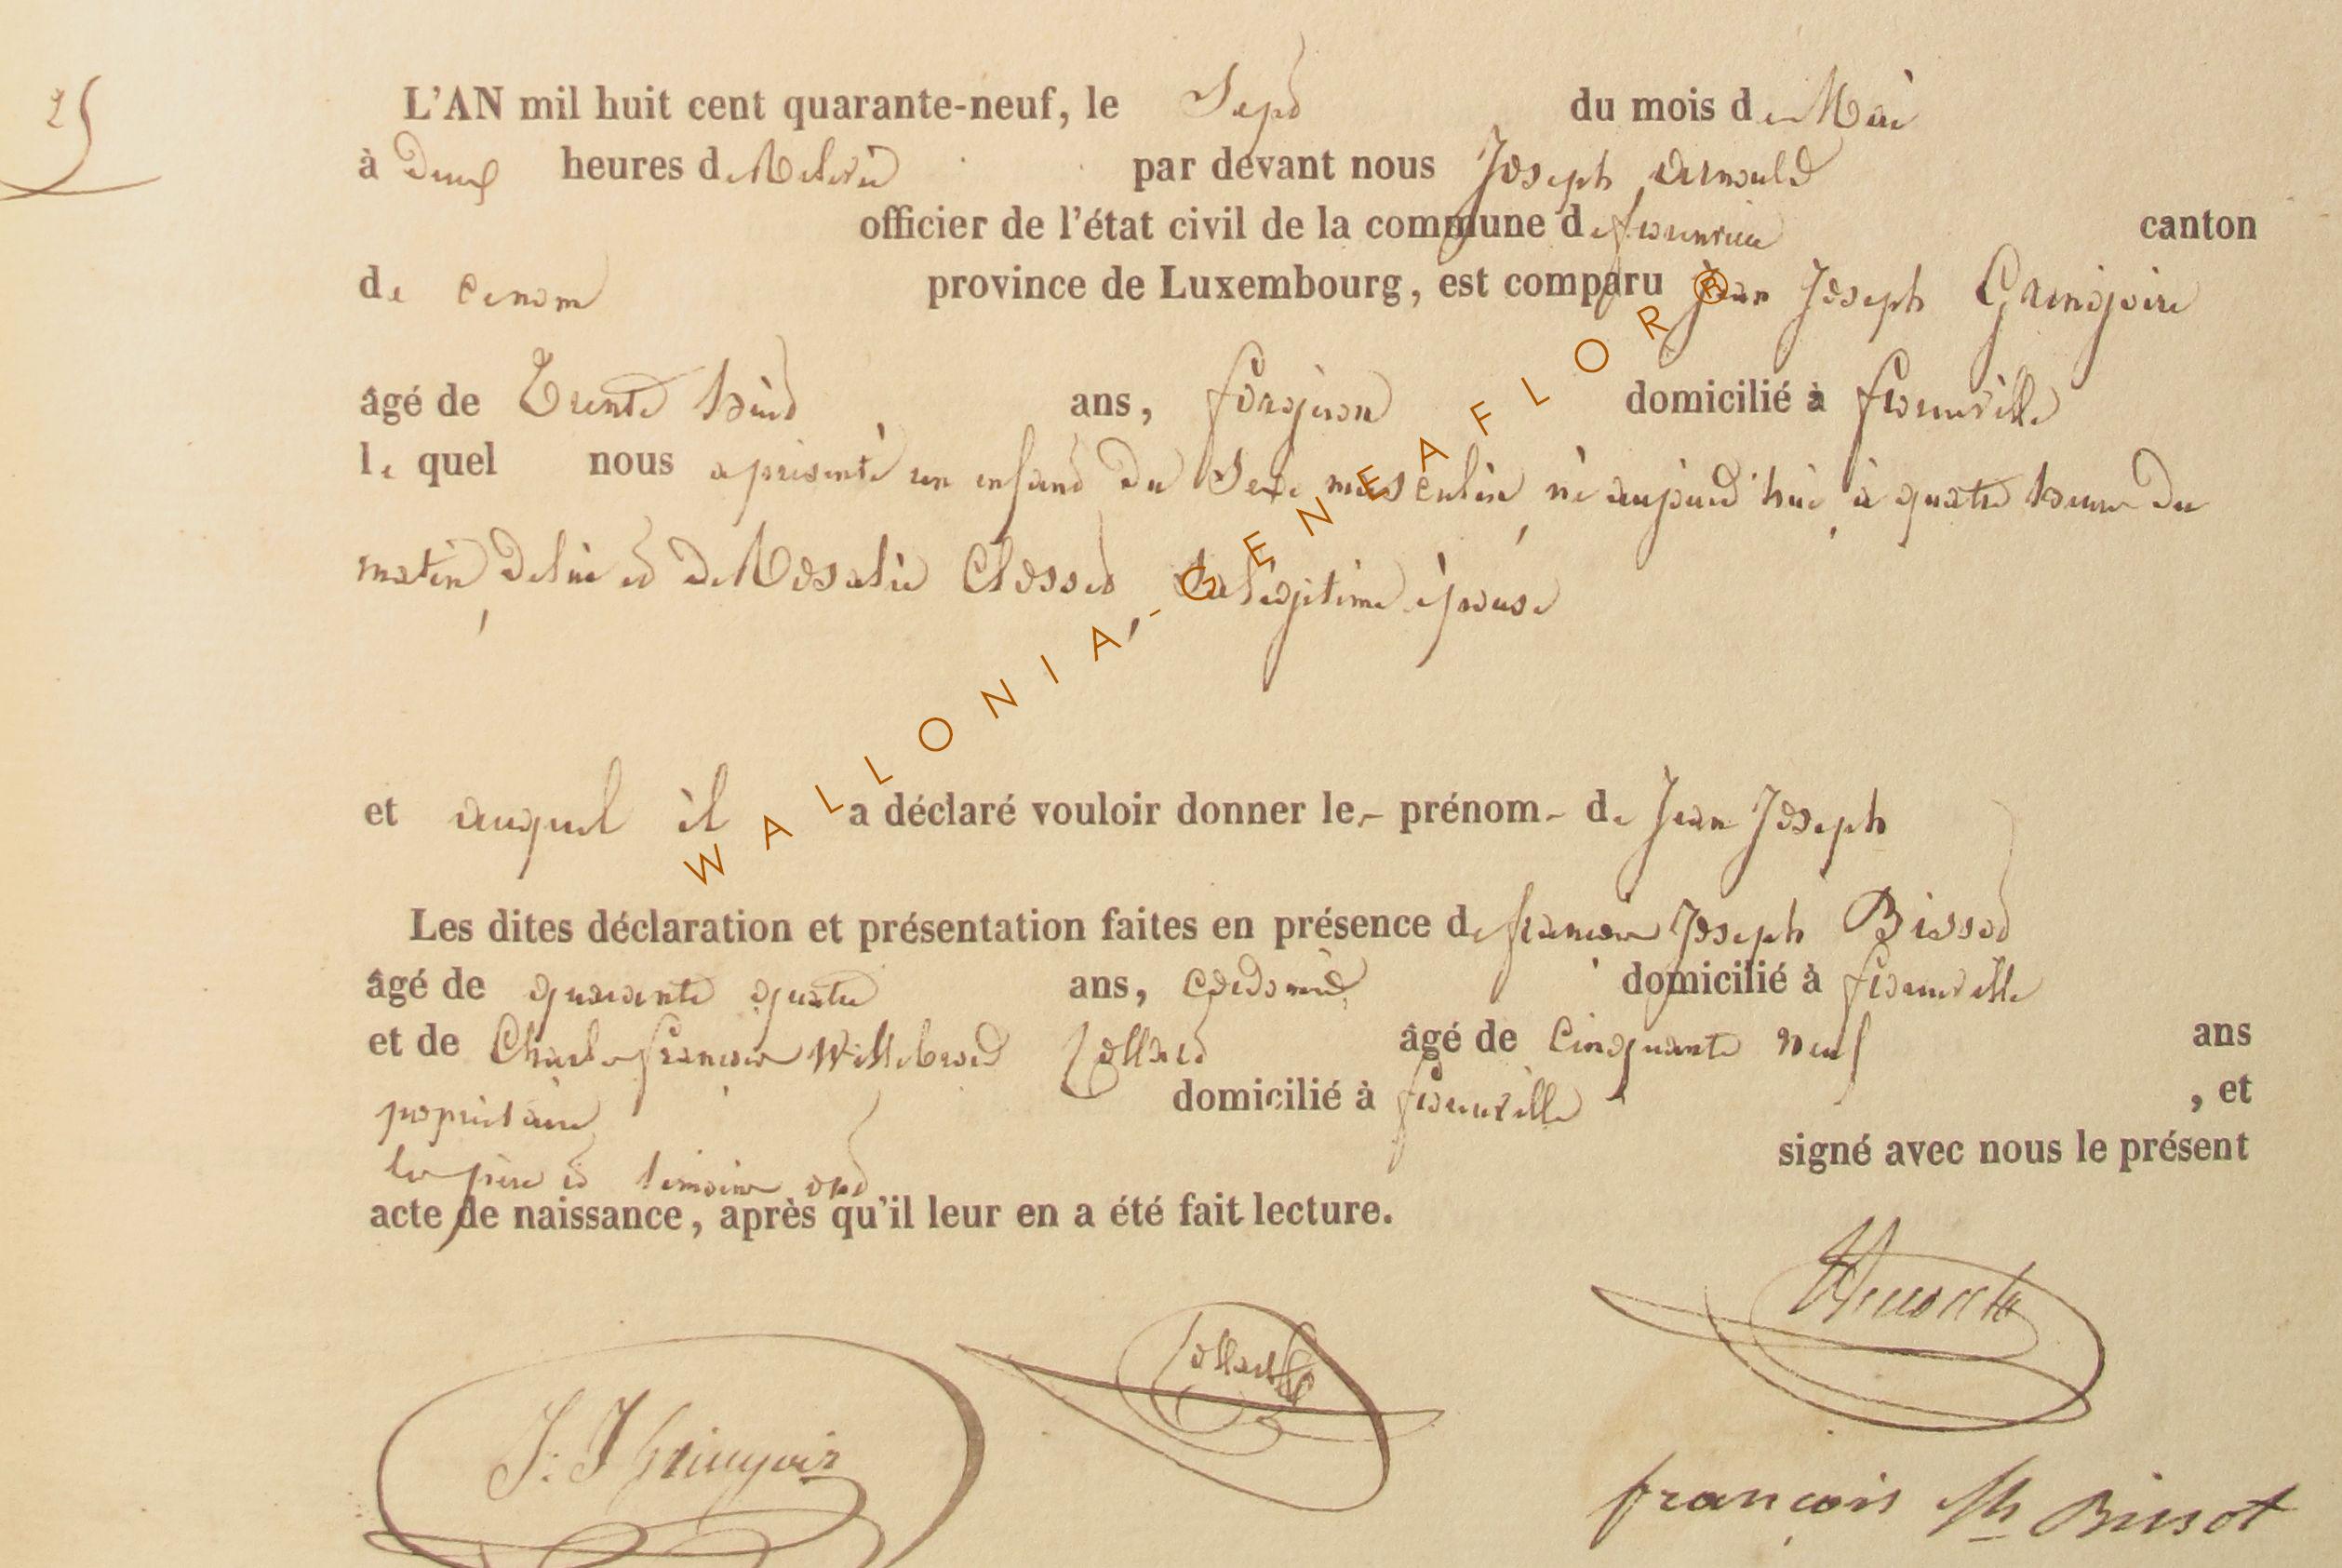 25
L'AN mil huit cent quarante-neuf, le Sept du mois de Mai
à Deux heures de Relevée par devant nous Joseph Arnould
officier de l'état civil de la commune de frenville canton
de province de Luxembourg, est comparu Jean Joseph Gringoire
âgé de Trente huit ans, forgeron domicilié à
le quel nous a présenté un enfant du Sexe masculin, né aujourd'hui, à quatre heures du
matin, de lui et de Rosalie Closset, Sa légitime épouse
et auquel il a déclaré vouloir donner le- prénom- de Jean Joseph
Les dites déclaration et présentation faites en présence de françois Joseph Bissot
âgé de quarante quatre ans, domicilié à
et de Charles françois Willebrord Collard âgé de Cinquante neuf ans
propriétaire domicilié à , et
les père et témoins ont signé avec nous le présent
acte de naissance, après qu'il leur en a été fait lecture.
J: J Gringoire
Collard
françois Jh Bissot
WALLONIA-GENEAFLOR®